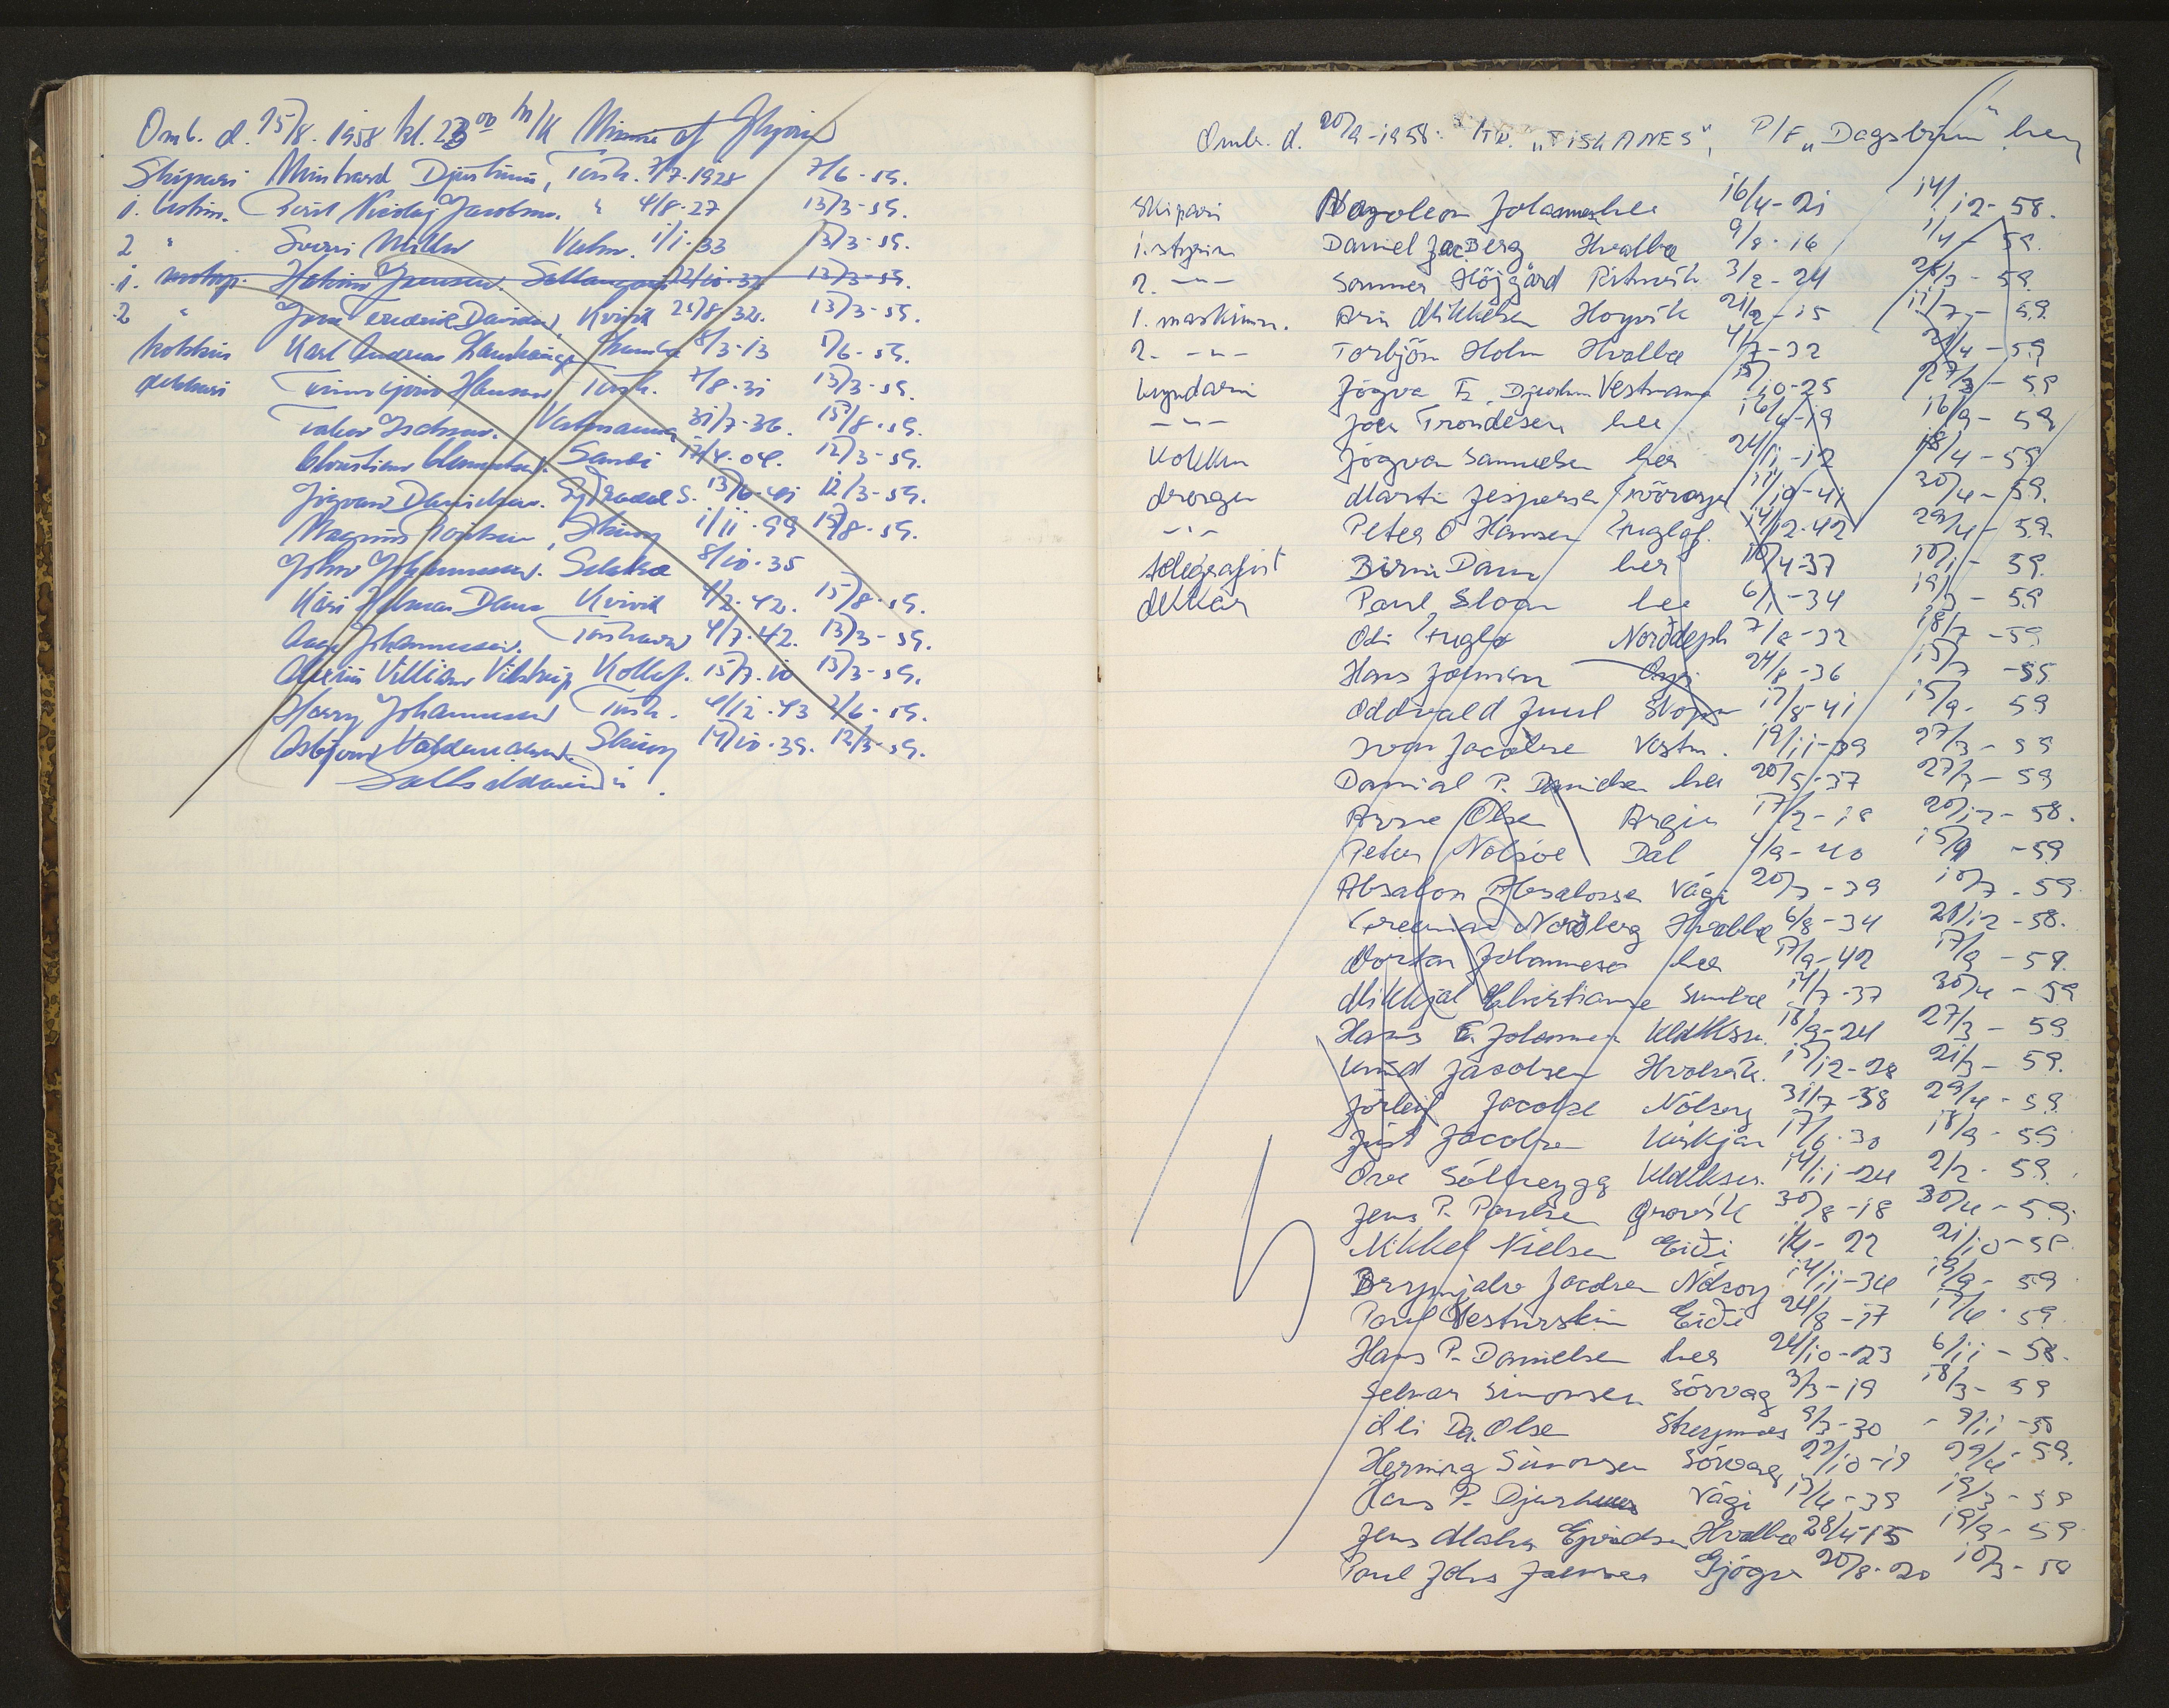 Omb. d. 15/8. 1958 kl. 23 00 m/k Minnie af
Skipari Meinhard Djurhuus, Tórsh. 7/7.1928 7/6-59.
1. Nicolaj Jacobsen. " 4/8-27 13/3-59.
2 " Sverri Müller Vestm. 1/1-33 13/3-59.
1. motorp. Jensen. 22/10-32 13/3-59.
2 " Frederik Davidsen, Kvívík 21/8-32. 13/3-59.
kokkur Karl Andreas 8/3-13 1/6-59.
dekkari Hansen Tórsh. 7/8-31 13/3-59.
Vestmanna 31/7-36. 15/8-59.
Christian Sandi 17/4-04. 12/3-59.
Jógvan Danielsen. S. 13/6-41 12/3-59.
Magnus 1/11-99 15/8-59.
John Johannesen. 8/10-35
Kári Dam Kvívík 4/2-42. 15/8-59.
Johannesen. Tórshavn 4/7-42. 13/3-59.
Villiam Vilstrup Kollaf. 15/7.10 13/3-59.
Harry Johannesen Tórsh. 4/12-43 2/6-59.
Asbjørn Valdemarsen. 14/10-39. 12/3-59.
Omb. d. 20/9-1958. S/Tr. "FISKANES", P/F "Dagsbrún" her
Skipari Napoleon Johannesen her 16/4-21 14/12-58.
1. stýrim Daniel Jac. Berg Hvalba 9/8-16 1/4-59.
2. -"- Højgård Rituvík 3/2-24 28/3-59.
1. maskinm. Arni Mikkelsen Hoyvík 21/2-15 11/7-59
2. -"- Torbjörn Holm Hvalba 4/7-32 21/4-59
kyndarin Jógvan F. Djurhuus Vestmanna 15/10-25 27/3-59
-"- Jóan Trondesen her 16/6-19 16/9-59
Kokkur Jógvan Samuelsen her 24/1-12 18/4-59
drongur Martin Jespersen 11/10-41 30/4-59.
-"- Peter O Hansen Fuglaf. 14/12-42 29/4-59.
telegrafist Birni Dam her 10/4-37 10/1-59.
dekkar Poul Sloan her 6/1-34 19/3-59
Fuglø Norðdeph 7/8-32 18/7-59
Hans Joensen 24/8-36 15/7-59
Oddvald Juul Skopun 17/8-41 15/9-59
Ivar Jacobsen Vestm. 19/11-39 27/3-59
Danial P. Danielsen her 20/5-37 27/3-59
Arne Olsen Argir 17/2-18 20/12-58.
Peter Nolsøe Dal 4/9-40 15/9-59
Absalon Absalonsen Vági 20/7-39 10/7-59
Nordberg Hvalba 6/8-34 28/12-58.
Morten Johannesen her 17/9-42 17/9-59.
Mikkjal Christiansen Sumba 14/7-37 30/4-59
Hans E. Johannesen Klakksv. 18/9-24 27/3-59
Knud Jacobsen Hvalvík. 15/12-28 21/3-59.
Jórleif Jacobsen Nólsoy 31/7-38 29/4-59
Just Jacobsen Kirkjan 17/6-30 18/9-59
Ove Sólheygg Klakksv. 14/11-24 2/2-59.
Jens P. Poulsen Ørðavík 30/8-18 30/4-59.
Mikkel Nielsen Eiði 1/4-22 21/10-58.
Brynjalv Jacobsen Nólsoy 14/11-34 19/9-59
Poul Vesturstein Eiði 24/8-17 17/4-59
Hans P. Danielsen her 24/10-23 6/11-58.
Selmar Simonsen Sörvag 3/3-19 18/3-59
Da. Olsen Streymnes 9/3-30 - 9/11-58
Herning Simonsen Sörvag 22/10-19 29/4-59.
Hans P. Djurhuus Vági 13/4-39 19/3-59
Jens Ejvindsen Hvalba 28/4-15 19/9-59
Poul Johs Joensen Gjógv 20/8-20 10/3-59